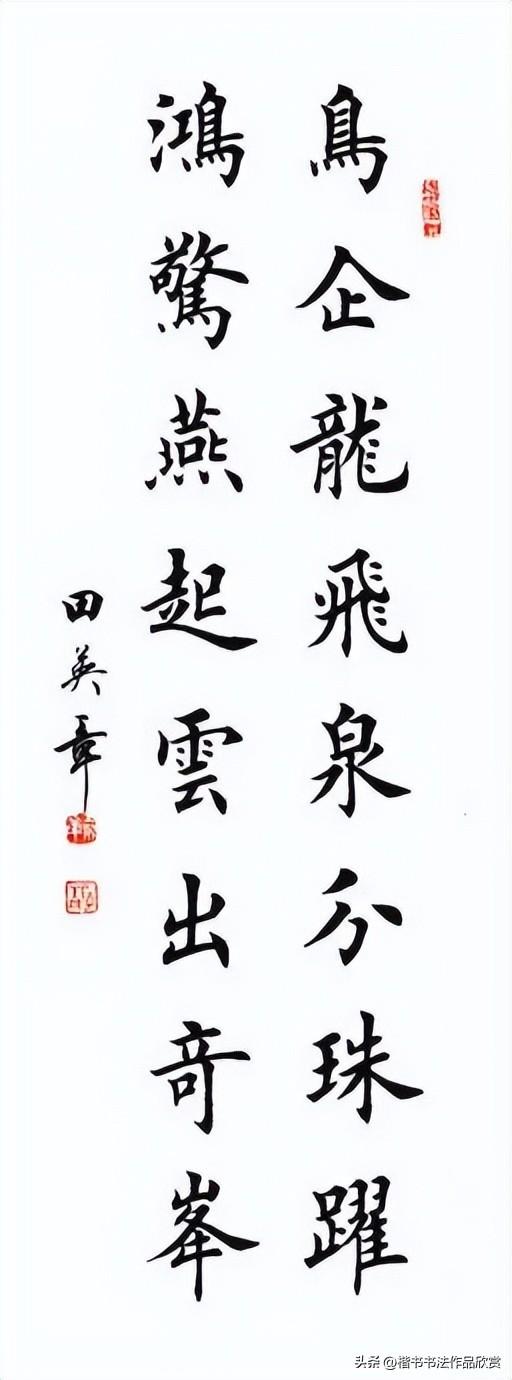 鳥企龍飛泉分珠躍
鴻驚燕起雲出奇峯
田英章
头条 @楷书书法作品欣赏